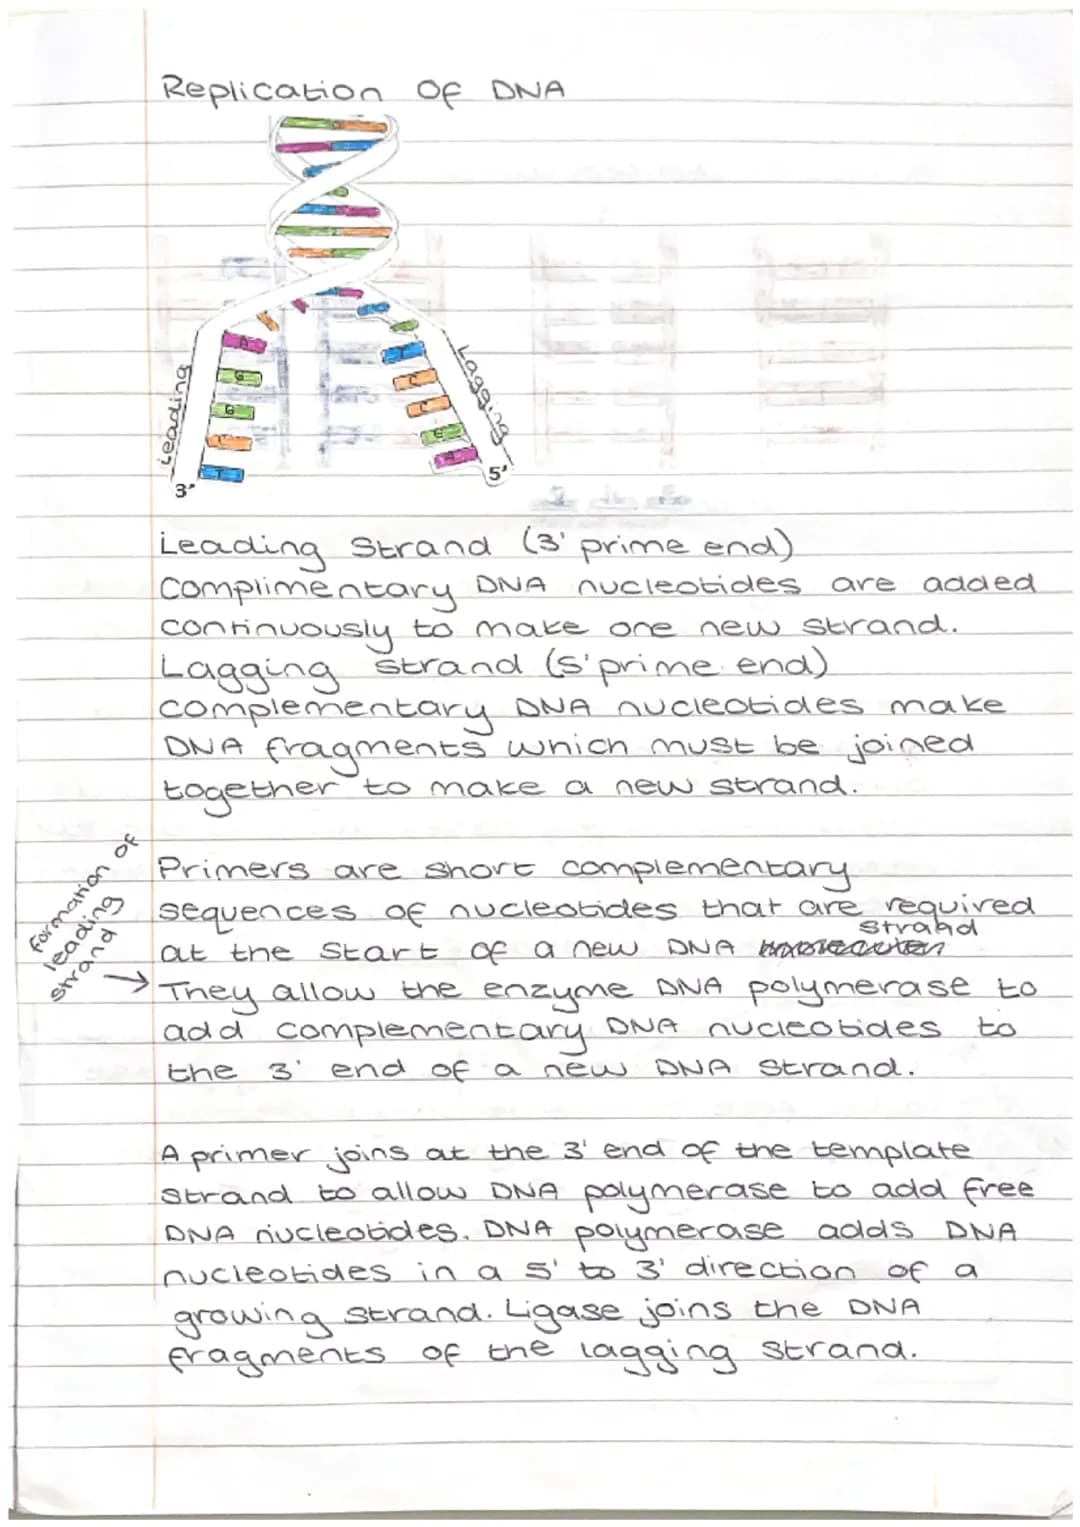 Replication Of DNA
Leading
Lagging
G
G
T
C
C
3'
5'
Leading Strand (3' prime end)
Complimentary DNA nucleotides are added
continuously to make one new strand.
Lagging strand (5' prime end)
complementary DNA nucleotides make
DNA fragments which must be joined
together to make a new strand.
Formation of
leading
strand
Primers are short complementary
sequences of nucleotides that are required
strand
at the start of a new DNA
They allow the enzyme DNA polymerase to
add complementary DNA nucleotides to
the 3' end of a new DNA strand.
A primer joins at the 3' end of the template
strand to allow DNA polymerase to add free
DNA nucleotides. DNA polymerase adds DNA
nucleotides in a 5' to 3' direction of a
growing strand. Ligase joins the DNA
fragments of the lagging strand.